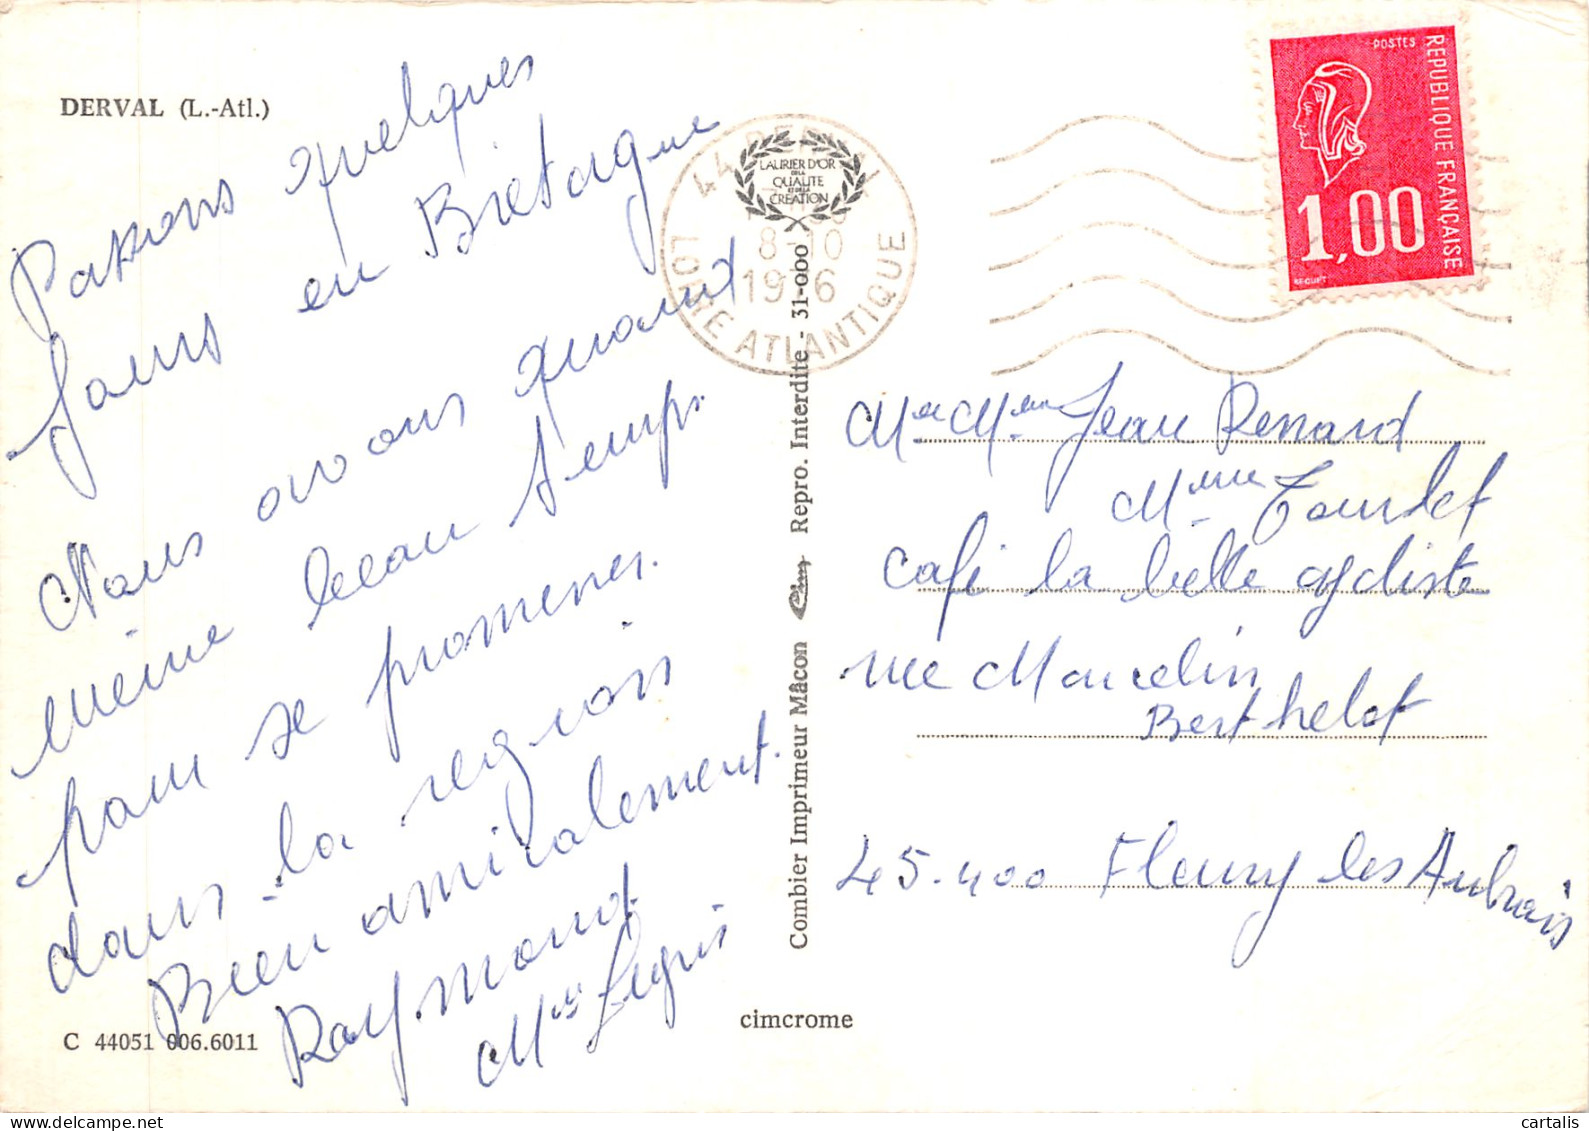 DERVAL (L.-Atl.)
Passons quelques
jours en Bretagne
Nous avons quand
même beau temps
pour se promener.
dans la region
Bien amicalement.
Raymond
C 44051 006.6011
cimcrome
Combier Imprimeur Mâcon Cim Repro. Interdite - 31-000
LAURIER D'OR
DE LA
QUALITE
ET DE LA
CREATION
44 DERVAL
8-10
LOIRE ATLANTIQUE
POSTES
REPUBLIQUE FRANÇAISE
1,00
BEQUET
Mr et Mme Jean Renard
Mme Tourdet
Café la belle cycliste
rue Marcelin
Berthelot
45.400 Fleury les Aubrais
cartalis
delcampe.net